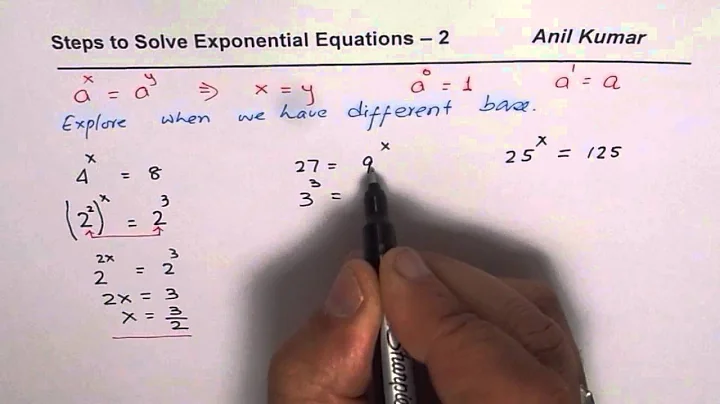 Steps to Solve Exponential Equations – 2 Anil Kumar
aˣ = aʸ ⇒ x = y a⁰ = 1 a¹ = a
Explore when we have different base.
4ˣ = 8
(2²)ˣ = 2³
2²ˣ = 2³
2x = 3
x = 3/2
27 = 9ˣ
3³ =
25ˣ = 125
Sharpie